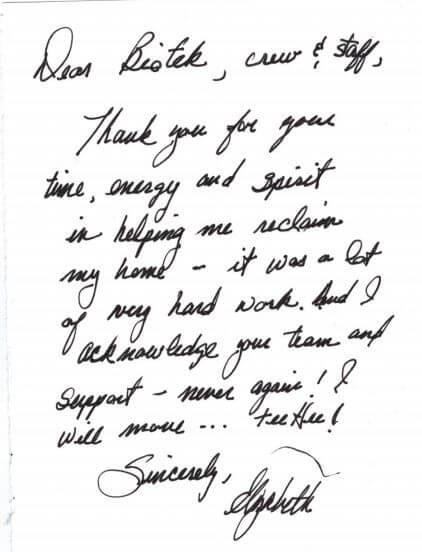 Dear Biotek, crew & staff,
Thank you for your
time, energy and spirit
in helping me reclaim
my home - it was a lot
of very hard work. And I
acknowledge your team and
support - never again! I
will move... teeHee!
Sincerely,
Elizabeth